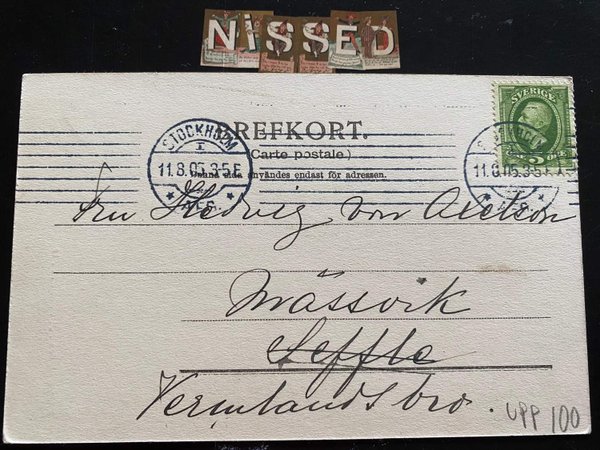 NiSSED
BREFKORT.
(Carte postale)
Denna sida användes endast för adressen.
SVERIGE
5 ÖRE
STOCKHOLM
1
11.8.05.3-5 E
AFG.
11.8.05.3-5 E
AFG.
Fru Hedvig von Axelson
Mässvik
Seffle
Vermlandsbro.
UPP 100